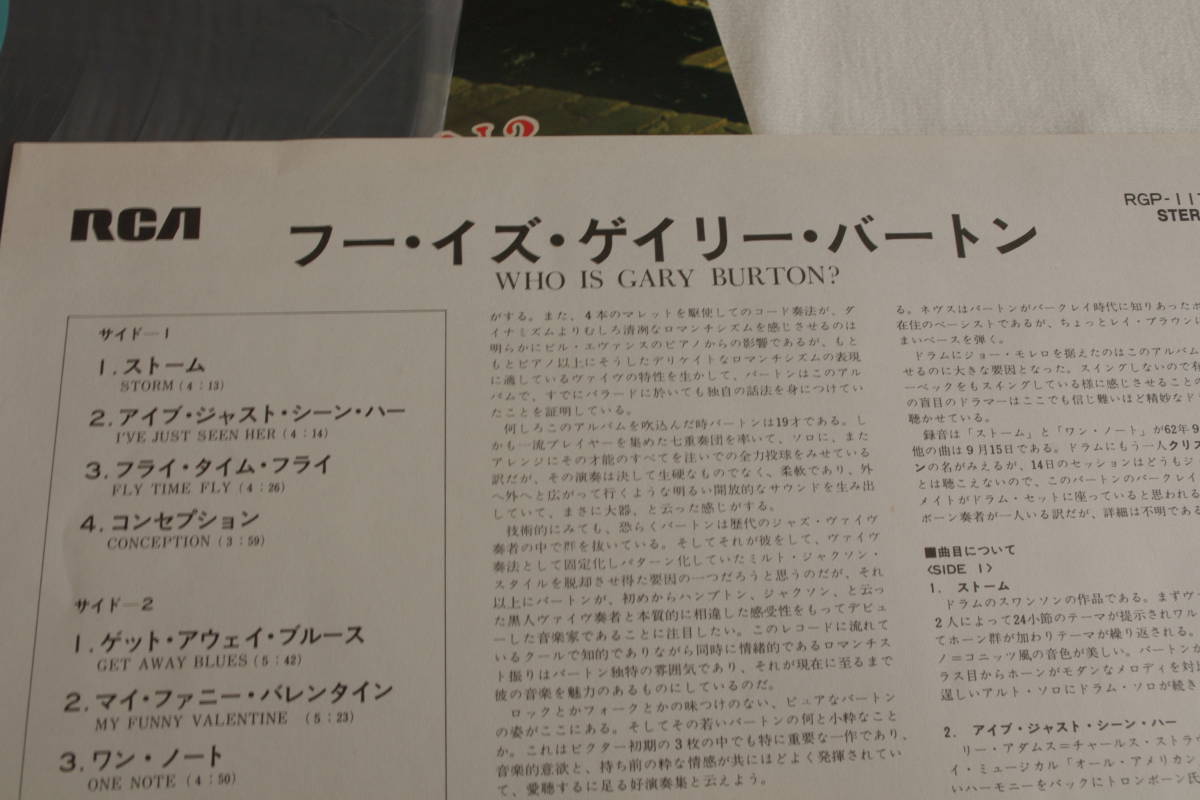 RCA
フー・イズ・ゲイリー・バートン
WHO IS GARY BURTON?
RGP-117
STER
サイド—1
1. ストーム
STORM (4:13)
2. アイブ・ジャスト・シーン・ハー
I'VE JUST SEEN HER (4:14)
3. フライ・タイム・フライ
FLY TIME FLY (4:26)
4. コンセプション
CONCEPTION (3:59)
サイド—2
1. ゲット・アウェイ・ブルース
GET AWAY BLUES (5:42)
2. マイ・ファニー・バレンタイン
MY FUNNY VALENTINE (5:23)
3. ワン・ノート
ONE NOTE (4:50)
がする。また、4本のマレットを駆使してのコード奏法が、ダ
イナミズムよりむしろ清冽なロマンチシズムを感じさせるのは
明らかにビル・エヴァンスのピアノからの影響であるが、もと
もとピアノ以上にそうしたデリケイトなロマンチシズムの表現
に適しているヴァイヴの特性を生かして、バートンはこのアル
バムで、すでにバラードに於いても独自の話法を身につけてい
たことを証明している。
何しろこのアルバムを吹込んだ時バートンは19才である。し
かも一流プレイヤーを集めた七重奏団を率いて、ソロに、また
アレンジにその才能のすべてを注いでの全力投球をみせている
訳だが、その演奏は決して生硬なものでなく、柔軟であり、外
へ外へと広がって行くような明るい開放的なサウンドを生み出
していて、まさに大器、と云った感じがする。
技術的にみても、恐らくバートンは歴代のジャズ・ヴァイヴ
奏者の中で群を抜いている。そしてそれが彼をして、ヴァイヴ
奏法として固定化しパターン化していたミルト・ジャクソン・
スタイルを脱却させ得た要因の一つだろうと思うのだが、それ
以上にバートンが、初めからハンプトン、ジャクソン、と云っ
た黒人ヴァイヴ奏者と本質的に相違した感受性をもってデビュ
ーした音楽家であることに注目したい。このレコードに流れて
いるクールで知的でありながら同時に情緒的であるロマンチス
ト振りはバートン独特の雰囲気であり、それが現在に至るまで
彼の音楽を魅力のあるものにしているのだ。
ロックとかフォークとかの味つけのない、ピュアなバートン
の姿がここにある。そしてその若いバートンの何と小粋なこと
か。これはビクター初期の3枚の中でも特に重要な一作であり、
音楽的意欲と、持ち前の粋な情感が共にほどよく発揮されてい
て、愛聴するに足る好演奏集と云えよう。
る。ネヴスはバートンがバークレイ時代に知りあったボ
在住のベーシストであるが、ちょっとレイ・ブラウンに
まいベースを弾く。
ドラムにジョー・モレロを据えたのはこのアルバム
せるのに大きな要因となった。スイングしないので有
ーベックをもスイングしている様に感じさせることの
の盲目のドラマーはここでも信じ難いほど精妙なド
聴かせている。
録音は「ストーム」と「ワン・ノート」が62年9
他の曲は9月15日である。ドラムにもう一人クリス
ンの名がみえるが、14日のセッションはどうもジ
とは聴こえないので、このバートンのバークレイ
メイトがドラム・セットに座っていると思われる
ボーン奏者が一人いる訳だが、詳細は不明である
■曲目について
〈SIDE 1〉
1. ストーム
ドラムのスワンソンの作品である。まずヴ
2人によって24小節のテーマが提示されワル
てホーン群が加わりテーマが繰り返される。
ノ=コニッツ風の音色が美しい。バートンが
ラス目からホーンがモダンなメロディを対比
逞しいアルト・ソロにドラム・ソロが続き
2. アイブ・ジャスト・シーン・ハー
リー・アダムス=チャールス・ストラウ
イ・ミュージカル「オール・アメリカン
いハーモニーをバックにトロンボーン氏